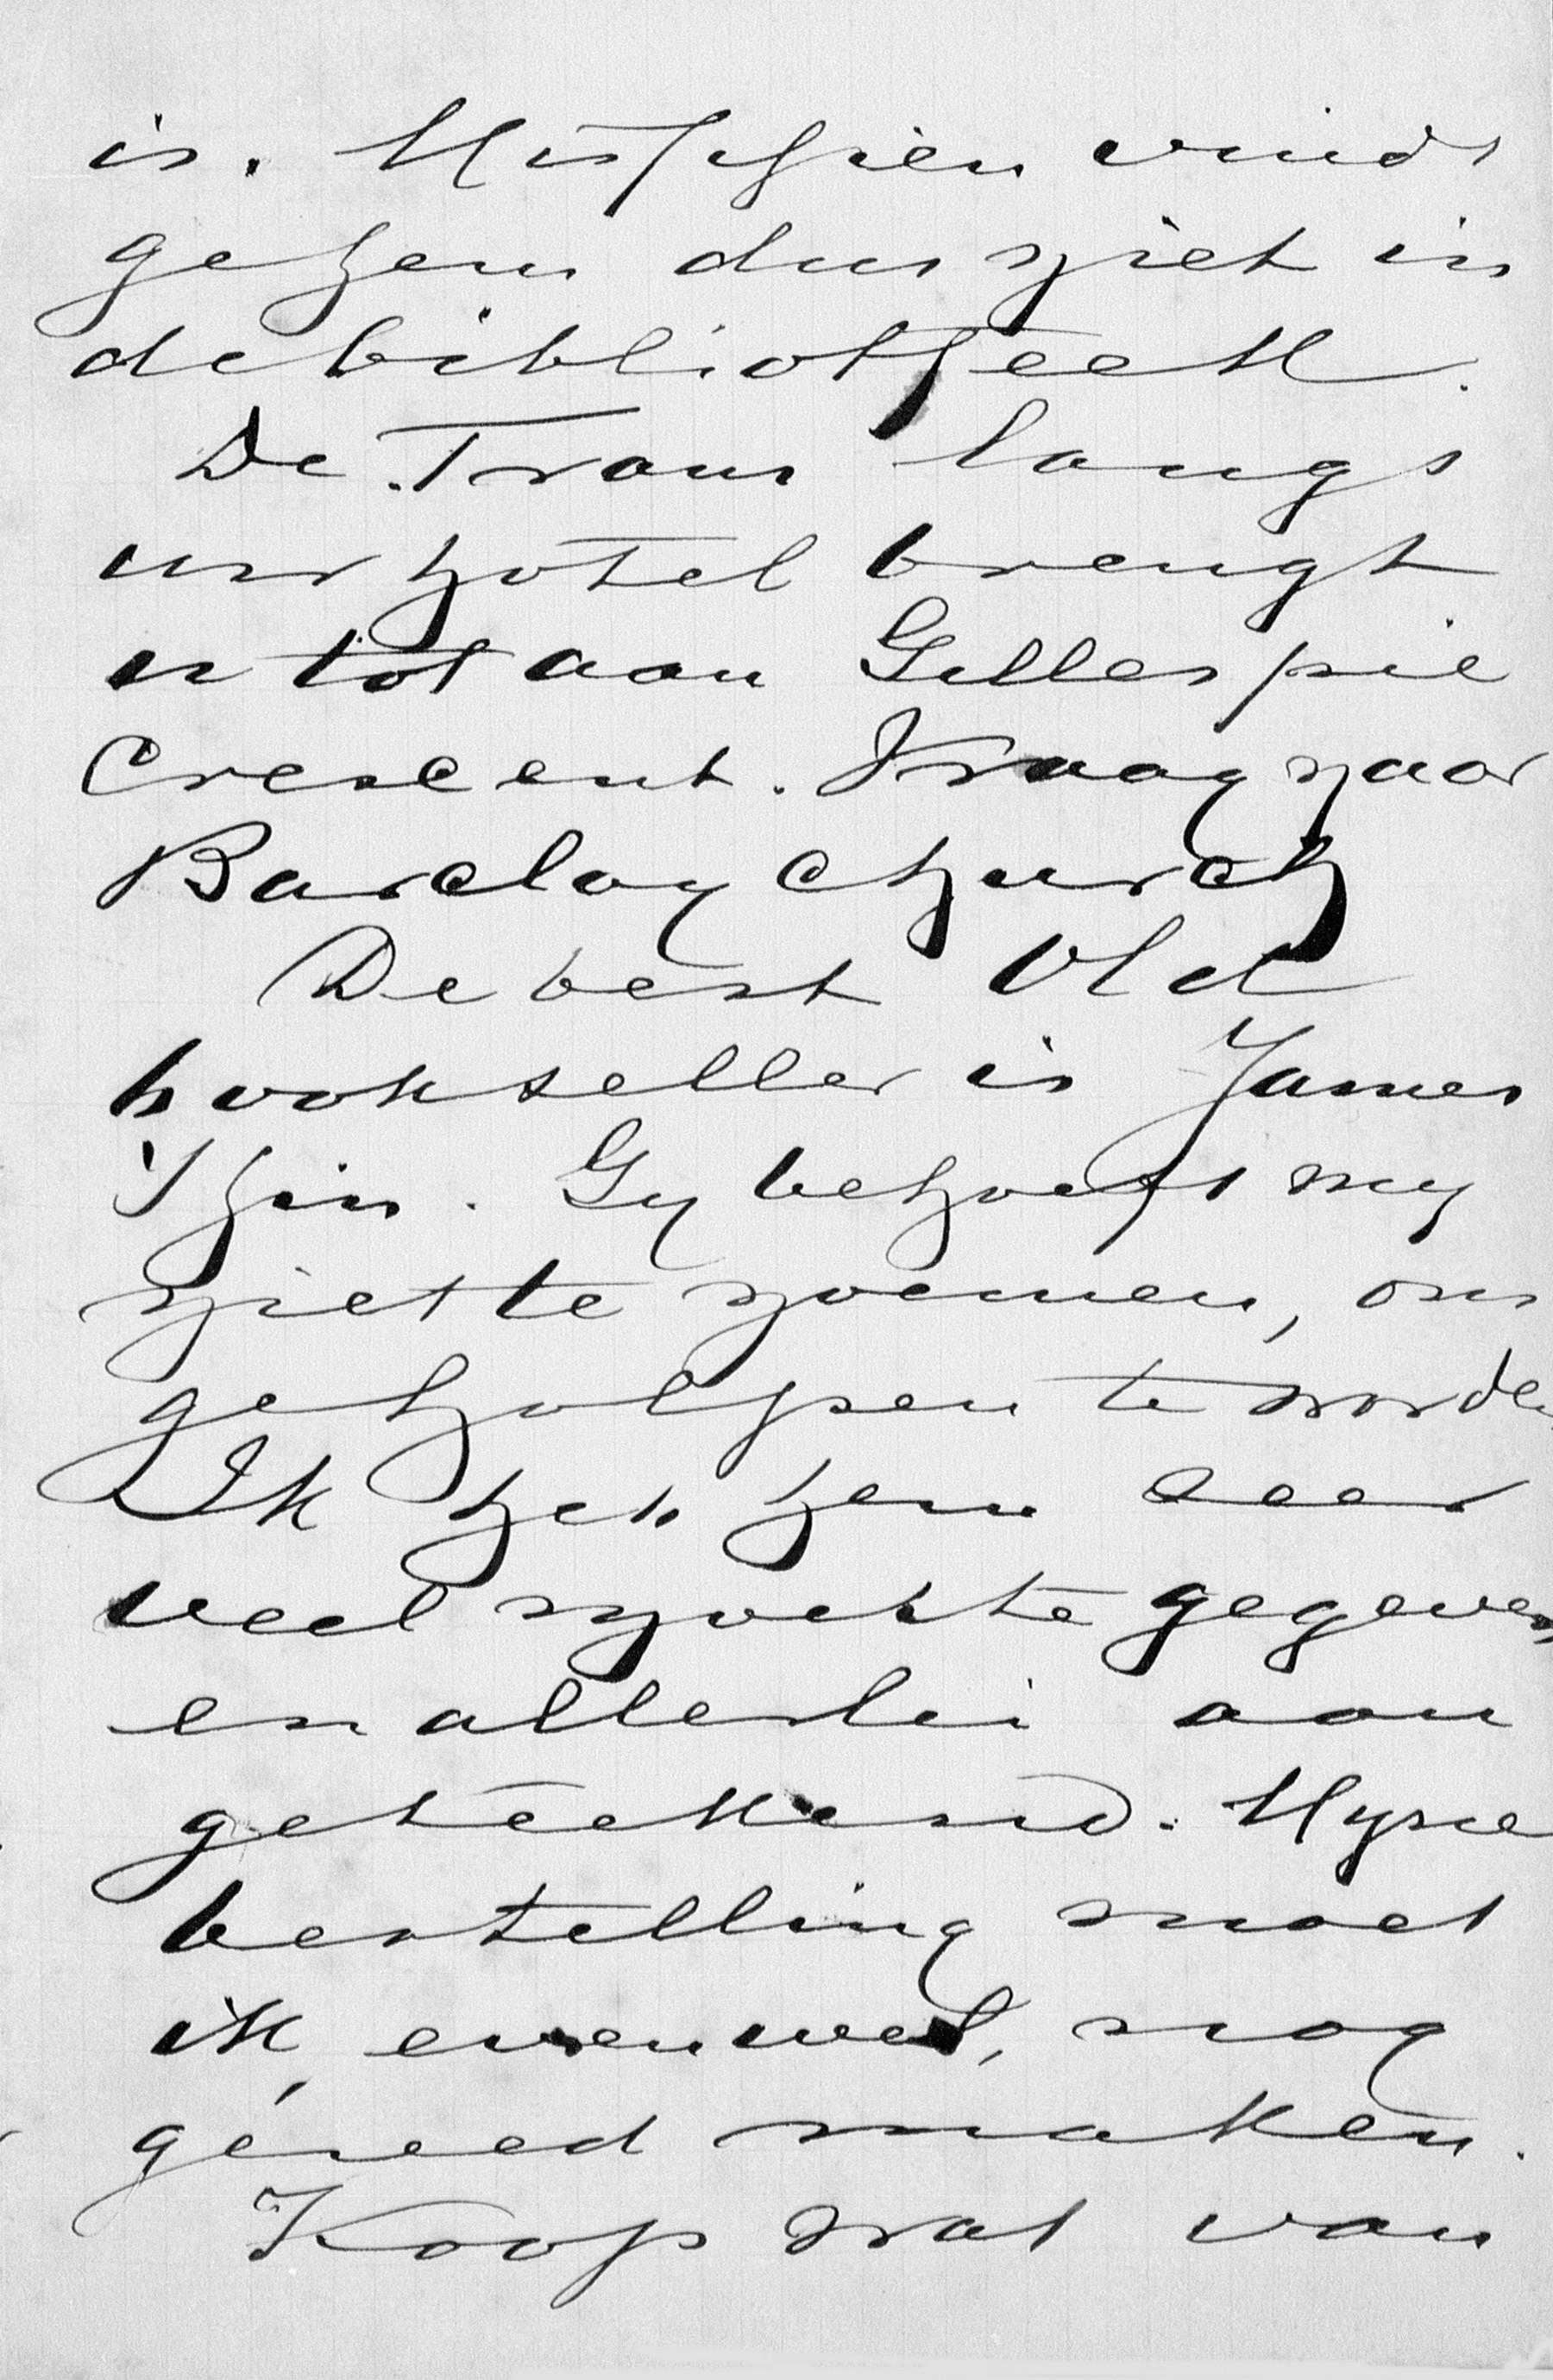 is. Misschien vindt
ge hem dus niet in
de bibliotheek.
De Tram langs
uw hotel brengt
u tot aan Gillespie
Crescent. Vraag naar
Barclay Church
De best Old
bookseller is James
Thin. Gy behoeft my
niet te noemen, om
geholpen te worden
Ik heb hem zeer
veel moeite gegeven,
en allerlei aan
geteekend. Myne
bestelling moet
ik, evenwel, nog
gereed maken.
Koop wat van